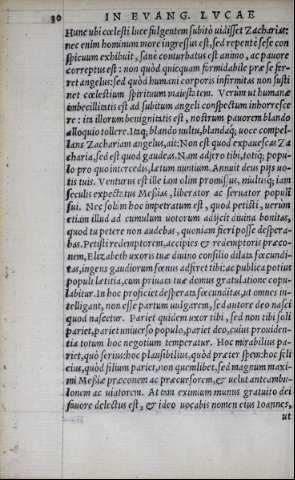 30 IN EVANG. LVCAE
Hunc ubi cœlesti luce fulgentem subitò uidisset Zacharias:
nec enim hominum more ingressus est, sed repentè sese con
spicuum exhibuit, sanè conturbatus est animo, ac pauore
correptus est: non quòd quicquam formidabile præ se fer-
ret angelus: sed quòd humani corporis infirmitas non susti
net cœlestium spirituum maiestatem. Verùm ut humanæ
imbecillitatis est ad subitum angeli conspectum inhorresce
re: ita illorum benignitatis est, nostrum pauorem blando
alloquio tollere. Itaq; blando uultu, blandaq; uoce compel-
lans Zachariam angelus, ait: Non est quod expauescas Za
charia, sed est quod gaudeas. Nam adfero tibi, totiq; popu-
lo pro quo intercedis, lætum nuntium. Annuit deus pijs uo-
tis tuis. Venturus est ille iam olim promissus, multisq; iam
seculis expectatus Messias, liberator ac seruator populi
sui. Nec solùm hoc impetratum est, quod petisti, uerùm
etiam illud ad cumulum uotorum adijcit diuina bonitas,
quod tu petere non audebas, quoniam fieri posse despera-
bas. Petisti redemptorem, accipies & redemptoris præco-
nem, Elizabeth uxoris tuæ diuino consilio dilata fœcundi-
tas, ingens gaudiorum fœnus adferet tibi: ac publica potius
populi lætitia, cum priuata tuæ domus gratulatione copu-
labitur. In hoc proficiet desperata fœcunditas, ut omnes in-
telligant, non esse partum uulgarem, sed autore deo nasci
quod nascetur. Pariet quidem uxor tibi, sed non tibi soli
pariet, pariet uniuerso populo, pariet deo, cuius prouiden-
tia totum hoc negotium temperatur. Hoc mirabilius pa-
riet, quò seriùs: hoc plausibilius, quòd præter spem: hoc feli
cius, quòd filium pariet, non quemlibet, sed magnum maxi-
mi Messiæ præconem ac præcursorem, & uelut anteambu-
lonem ac uiatorem. At tam eximium munus gratuito dei
fauore delectus est, & ideo uocabis nomen eius Ioannes,
ut